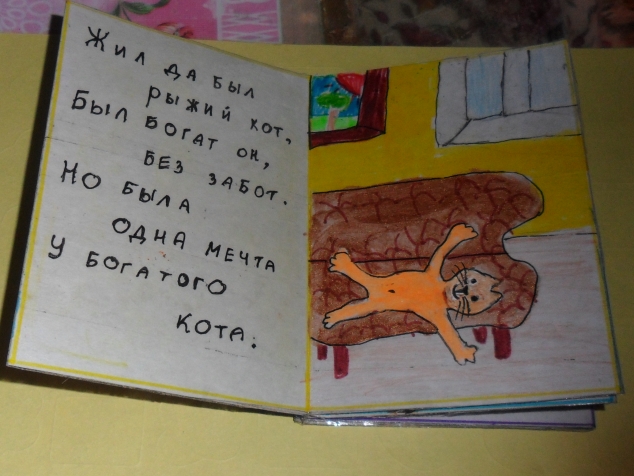 Жил да был
рыжий кот.
Был богат он,
без забот.
Но была
одна мечта
у богатого
кота.